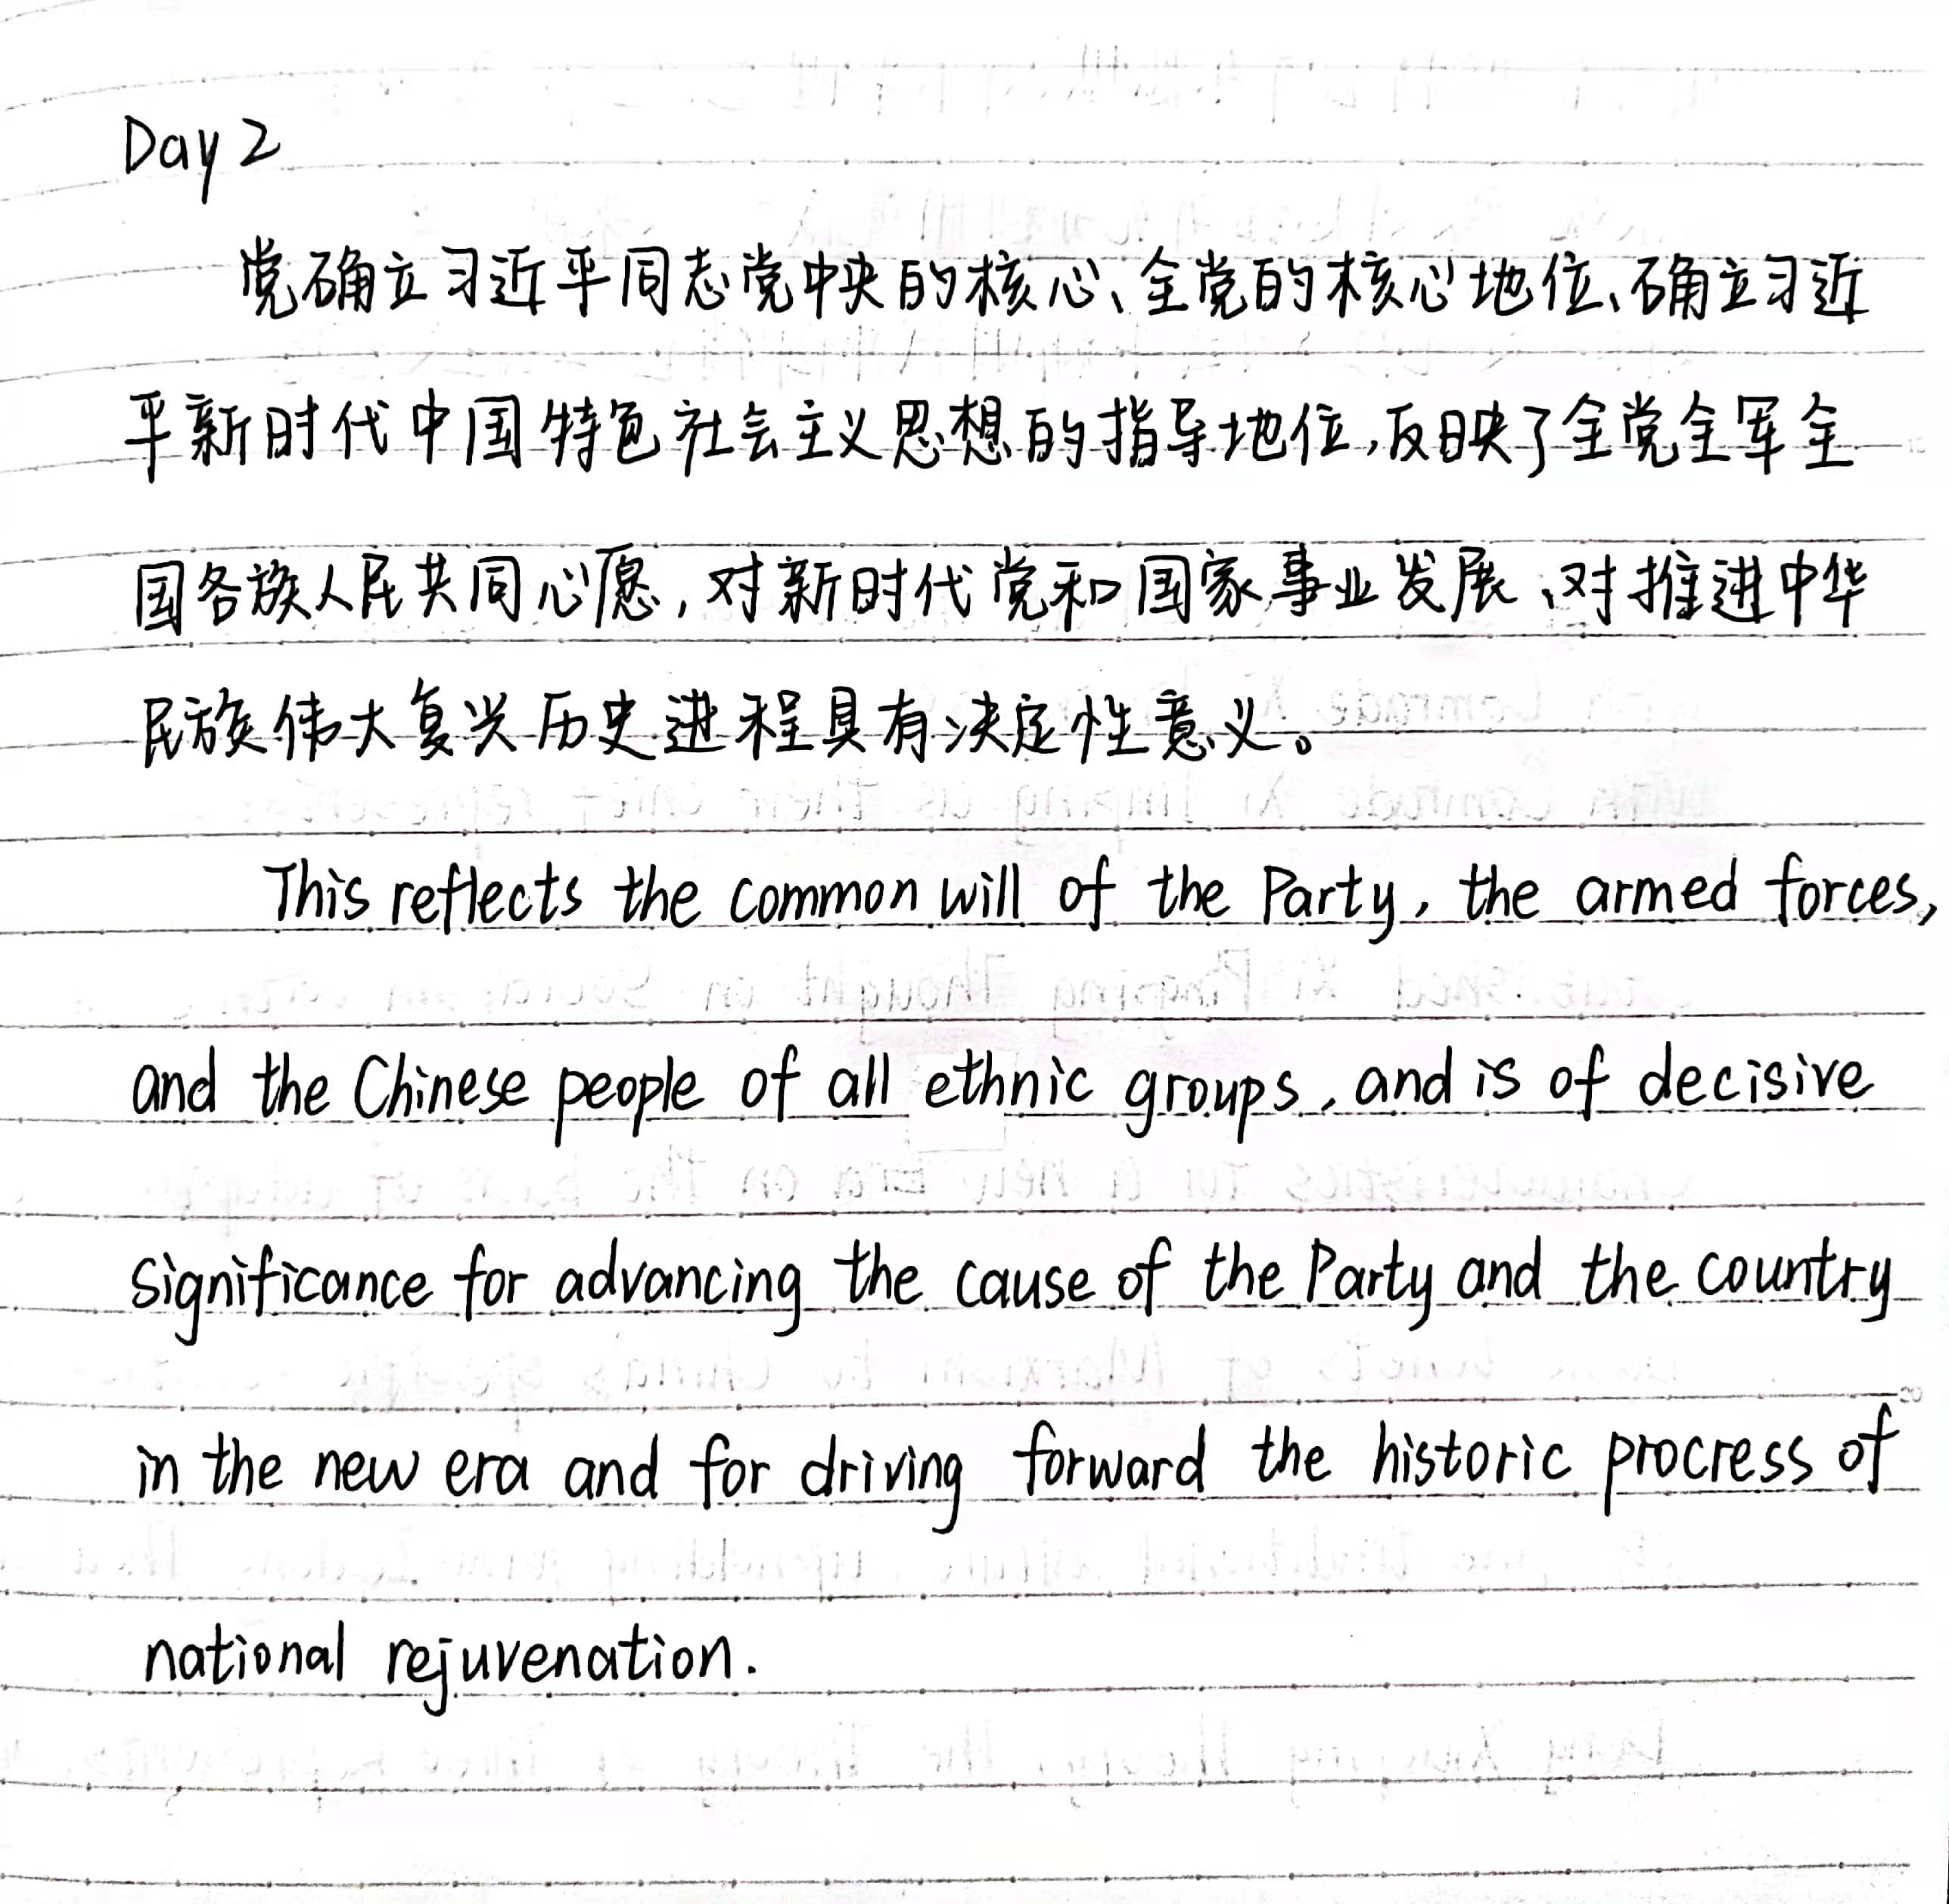 Day 2
党确立习近平同志党中央的核心、全党的核心地位、确立习近
平新时代中国特色社会主义思想的指导地位,反映了全党全军全
国各族人民共同心愿,对新时代党和国家事业发展、对推进中华
民族伟大复兴历史进程具有决定性意义。
This reflects the common will of the Party, the armed forces,
and the Chinese people of all ethnic groups, and is of decisive
significance for advancing the cause of the Party and the country
in the new era and for driving forward the historic procress of
national rejuvenation.